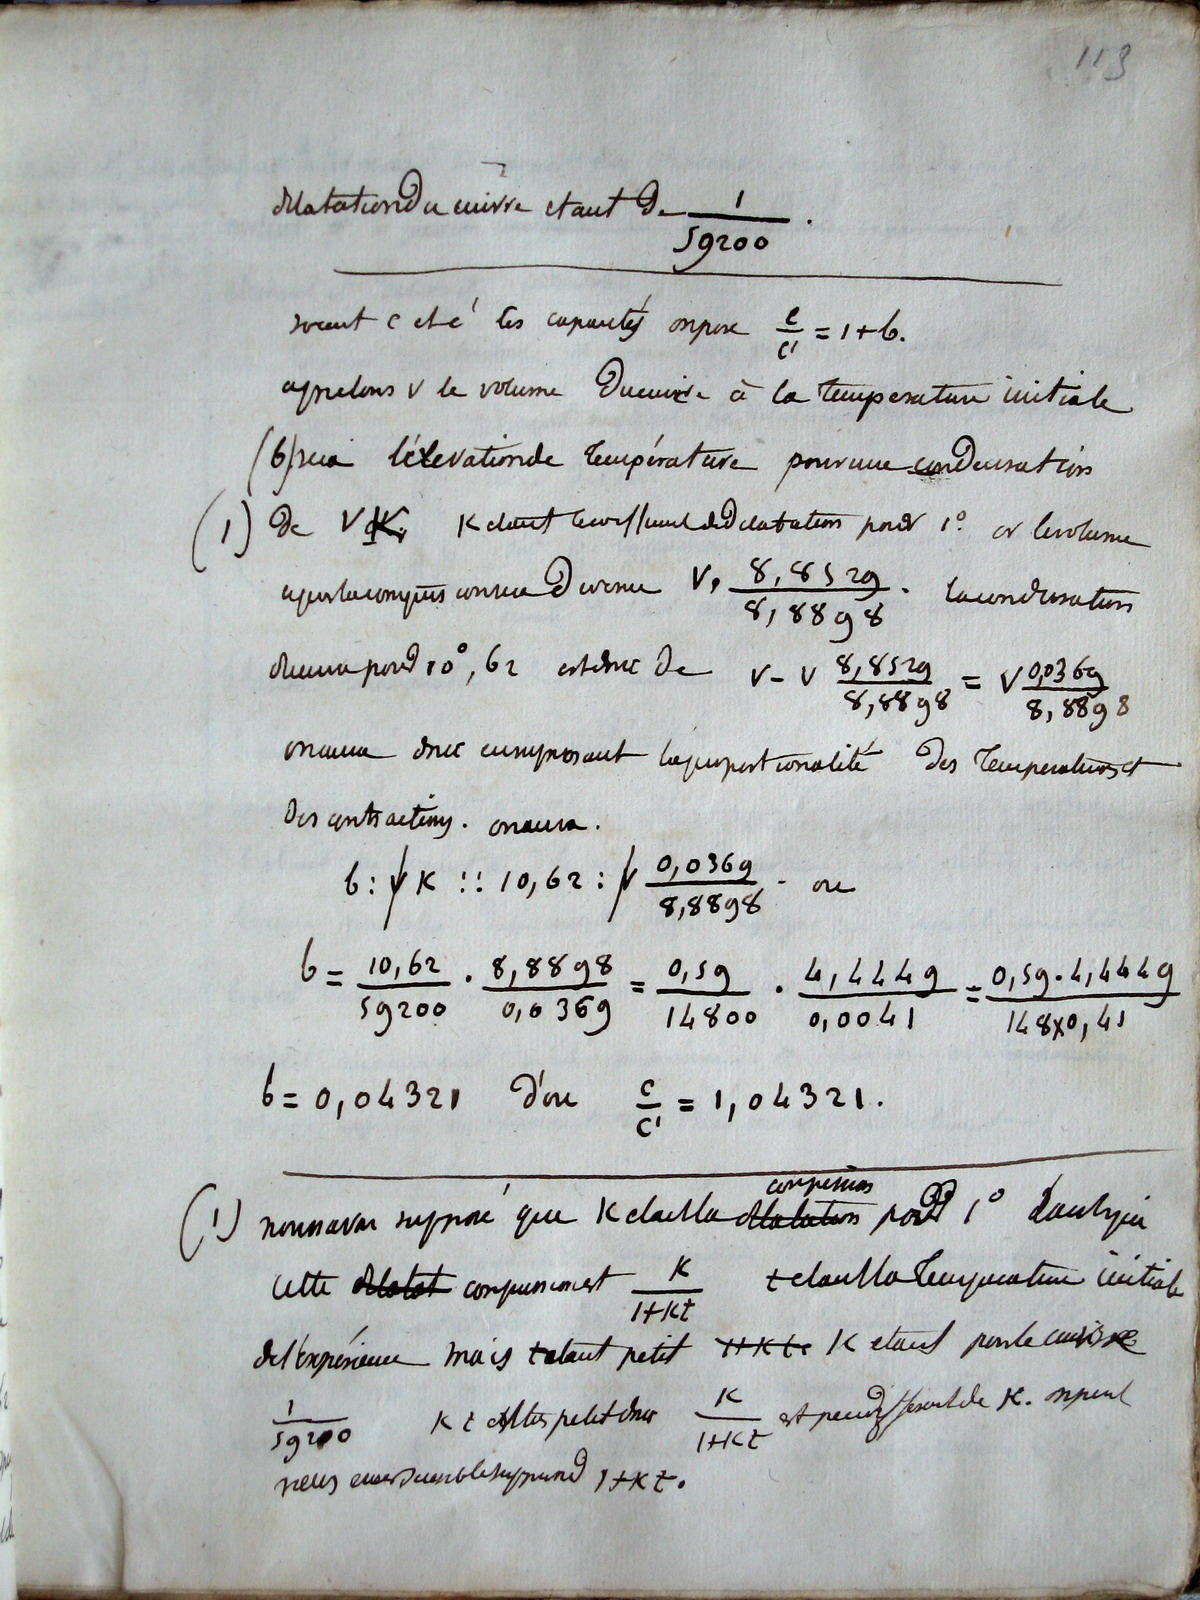 113
dilatation du cuivre etant de 1/59200.
soient c et c' les capacités on pose c/c' = 1 + b.
appelons v le volume du cuivre à la température initiale
(b) sera l'élevation de température pour une condensation
(1) de V K. K etant le coefficient de dilatation pour 1° or le volume
après la compression sera devenu V. 8,8529/8,8898. la condensation
pour 10°,62 est donc de v - v 8,8529/8,8898 = V 0,0369/8,8898
on aura donc en supposant la proportionalité des températures et
des contractions. on aura.
b : v K :: 10,62 : v 0,0369/8,8898. ou
b = 10,62/59200 . 8,8898/0,0369 = 0,59/14800 . 4,4449/0,0041 = 0,59.4,4449/148x0,41
b = 0,04321 d'ou c/c' = 1,04321.
(1) nous avons supposé que K etait la dilatation compression pour 1°
cette dilatat compression est K/1+Kt t etant la température initiale
de l'expérience mais t etant petit 1+Kt. K etant pour le cuivre
1/59200 Kt est très petit donc K/1+Kt est peu différent de K. on peut
1+Kt.